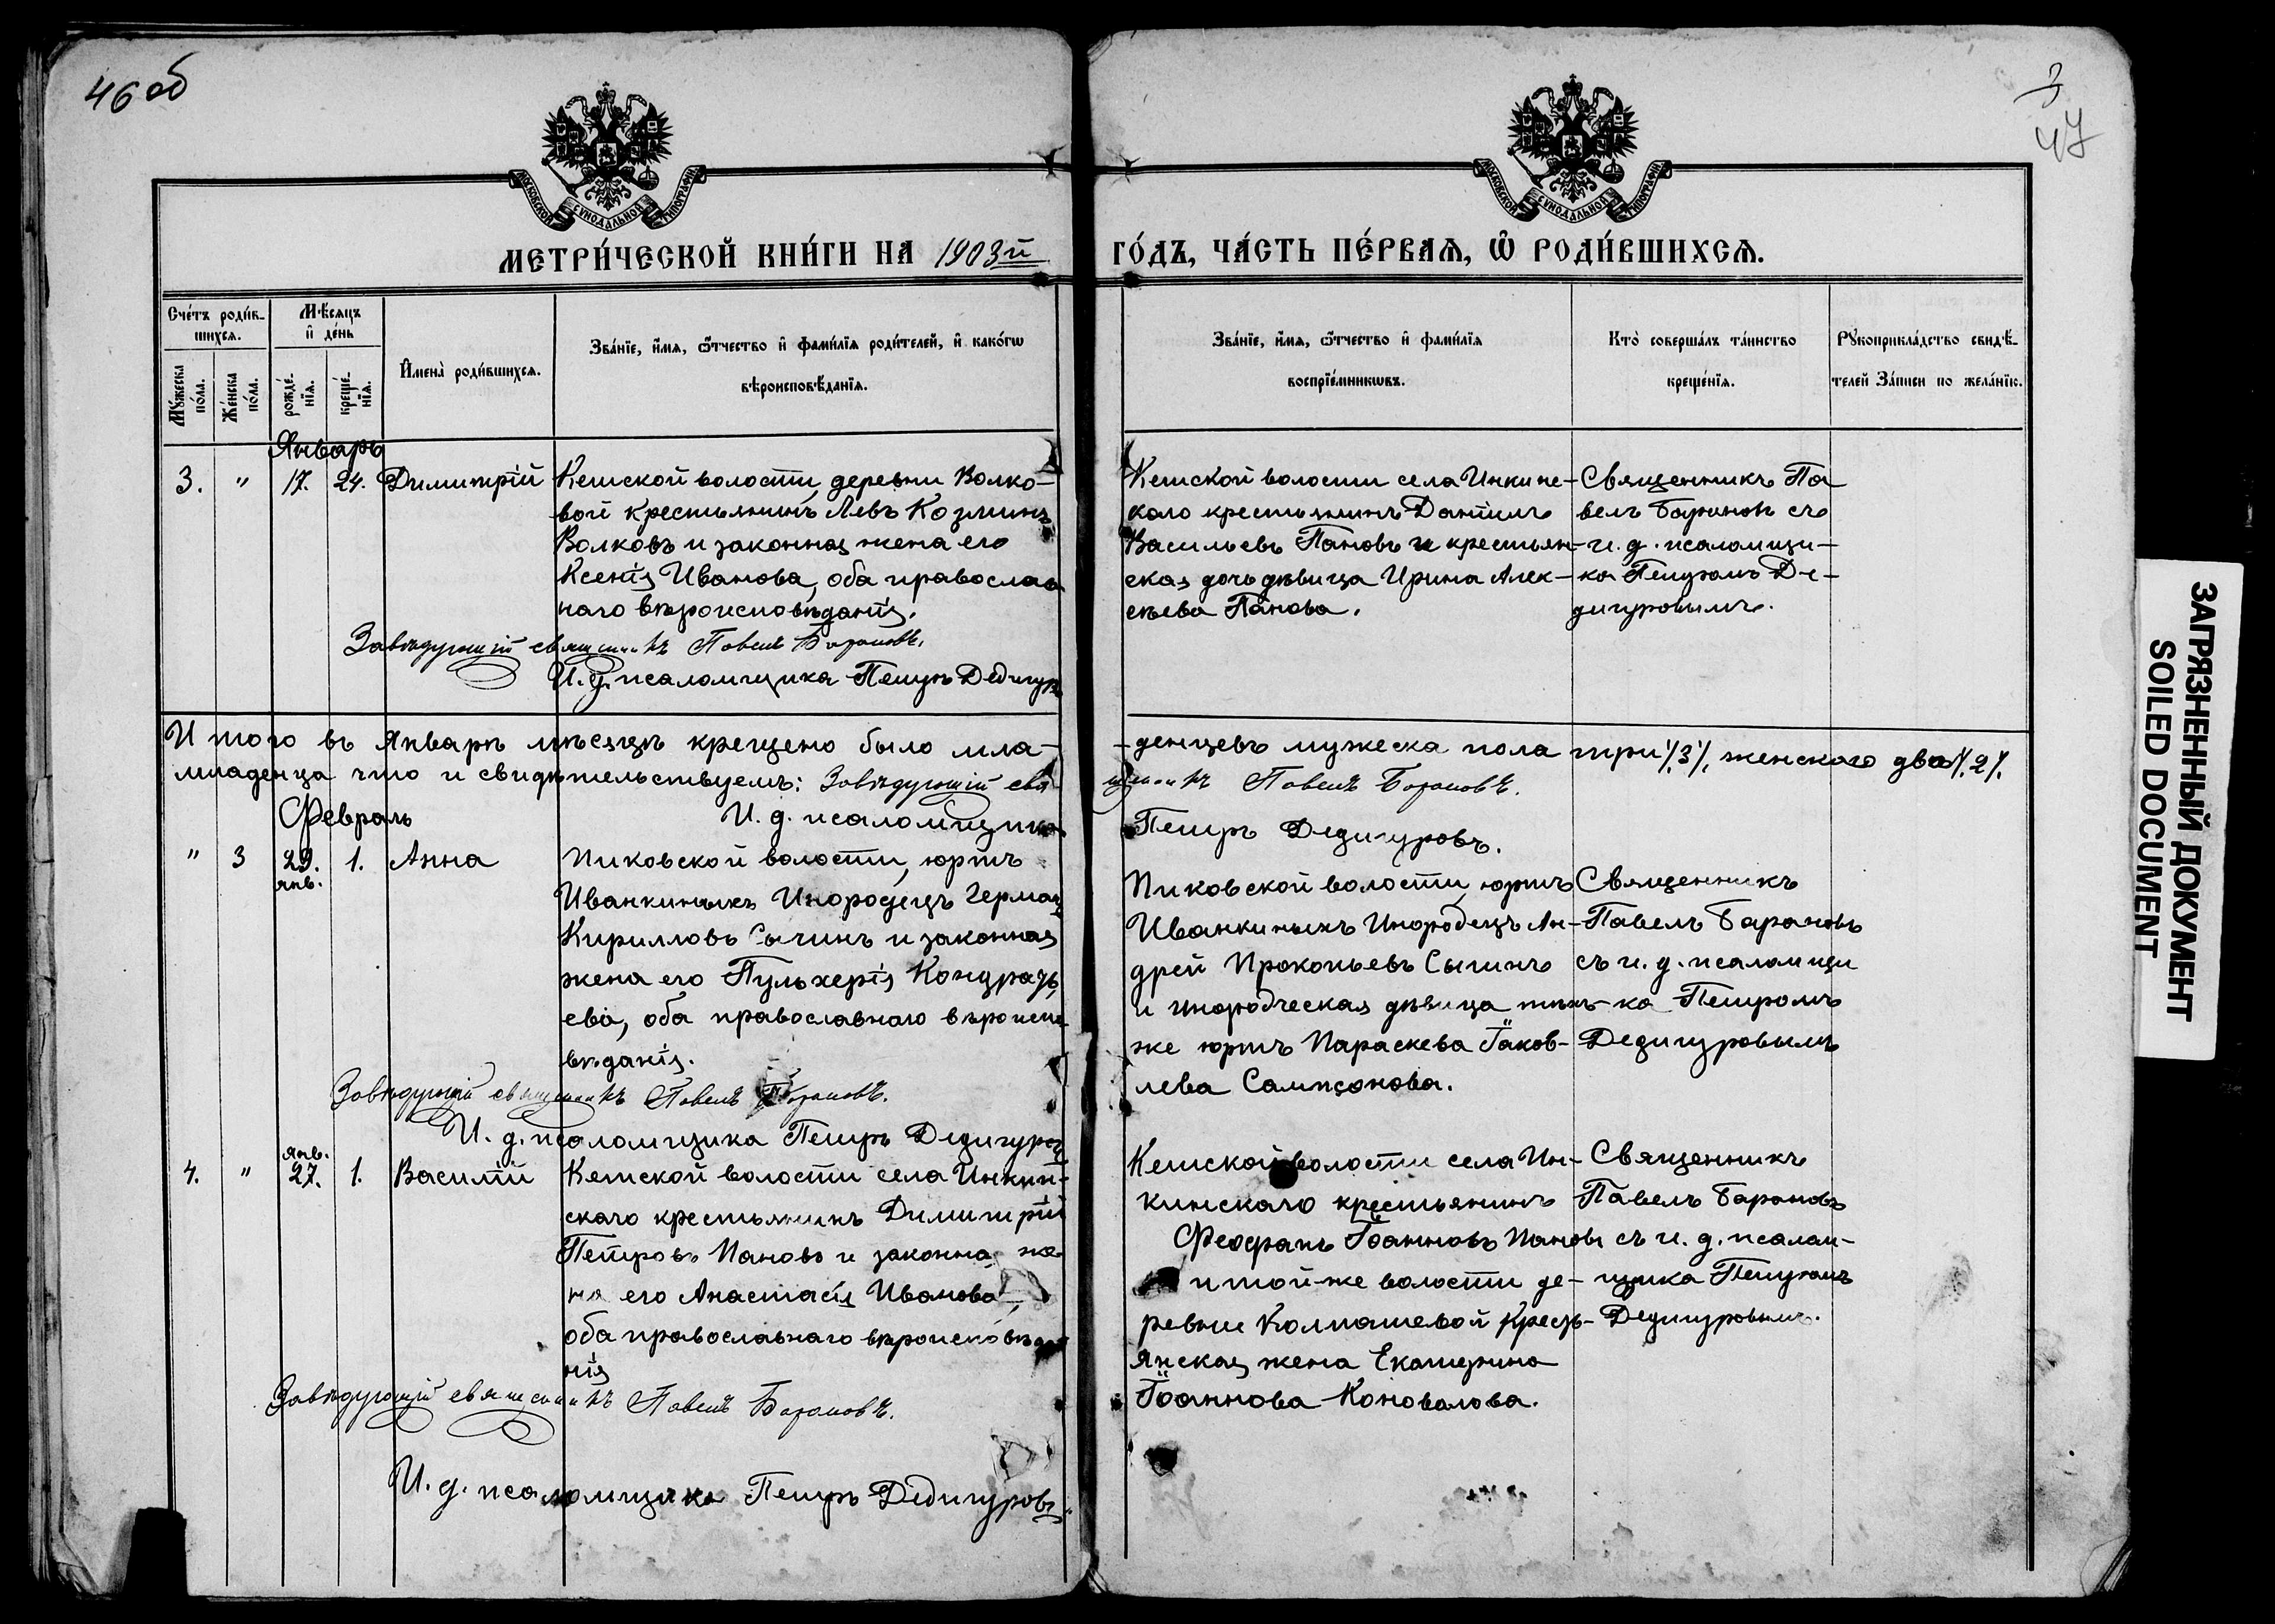 46 об
3
47
МОСКОВСКОЙ СѴНОДАЛЬНОЙ ТИПОГРАФІИ
МОСКОВСКОЙ СѴНОДАЛЬНОЙ ТИПОГРАФІИ
МЕТРИ́ЧЕСКОЙ КНИ́ГИ НА 1903й
ГО́ДЪ, ЧА́СТЬ ПЕ́РВАѦ, Ѡ҆ РОДИ́ВШИХСѦ.
Сче́тъ роди́в-
шихсѧ.
Мѣ́сѧцъ
и҆ де́нь
Мꙋ́жеска
по́ла.
Же́нска
по́ла.
рожде́-
нїѧ.
креще́-
нїѧ.
И҆мена̀ роди́вшихсѧ.
Зва́нїе, и҆́мѧ, ѻ҆́тчество и҆ фами́лїѧ роди́телей, и҆ како́гѡ
вѣроисповѣ́данїѧ.
Зва́нїе, и҆́мѧ, ѻ҆́тчество и҆ фами́лїѧ
воспрїе́мникѡвъ.
Кто̀ соверша́лъ та́инство
креще́нїѧ.
Рꙋкоприкла́дство свидѣ́-
телей За́писи по жела́нїю.
Январь
3. " 17. 24. Димитрій
Кетской волости деревни Волко-
вой крестьянинъ Левъ Козминъ
Волковъ и законная жена его
Ксенія Иванова, оба православ
наго вѣроисповѣданія.
Завѣдующій священникъ Павелъ Барановъ.
И. д. псаломщика Петръ Дедигур
Кетской волости села Инкинс-
каго крестьянинъ Даніилъ
Васильевъ Пановъ и крестьян-
ская дочь дѣвица Ирина Алек-
сѣева Панова.
Священникъ Па
велъ Барановъ съ
и. д. псаломщи-
ка Петромъ Де-
дигуровымъ.
Итого въ Январѣ мѣсяцѣ крещено было мла-
-денцевъ мужеска пола три /.3/. женского два /.2/.
младенца что и свидѣтельствуемъ: Завѣдующій свя-
щенникъ Павелъ Барановъ.
И. д. псаломщика
Петръ Дедигуровъ.
Февраль
" 3 29. 1. Анна
янв.
Пиковской волости, юртъ
Иванкиныхъ Инородецъ Герман
Кирилловъ Сычинъ и законная
жена его Пульхерія Кондрать
ева, оба православнаго вѣроиспо
вѣданія.
Завѣдующій священникъ Павелъ Барановъ.
И. д. псаломщика Петръ Дедигуров
Пиковской волости, юртъ
Иванкиныхъ Инородецъ Ан-
дрей Прокопьевъ Сычинъ
и инородческая дѣвица тѣхъ-
же юртъ Параскева Іаков-
лева Сампсонова.
Священникъ
Павелъ Барановъ
съ и. д. псаломщи
ка Петромъ
Дедигуровымъ
янв.
4. " 27. 1. Василій
Кетской волости села Инкин-
скаго крестьянинъ Димитрій
Петровъ Пановъ и законная же
на его Анастасія Иванова,
оба православнаго вѣроисповѣда
нія
Завѣдующій священникъ Павелъ Барановъ.
И. д. псаломщика Петръ Дедигуровъ
Кетской волости села Ин-
кинскаго крестьянинъ
Феофанъ Іоанновъ Пановъ
и той-же волости де-
ревни Колпашевой кресть-
янская жена Екатерина
Іоаннова Коновалова.
Священникъ
Павелъ Барановъ
съ и. д. псалом-
щика Петромъ
Дедигуровымъ.
ЗАГРЯЗНЕННЫЙ ДОКУМЕНТ
SOILED DOCUMENT